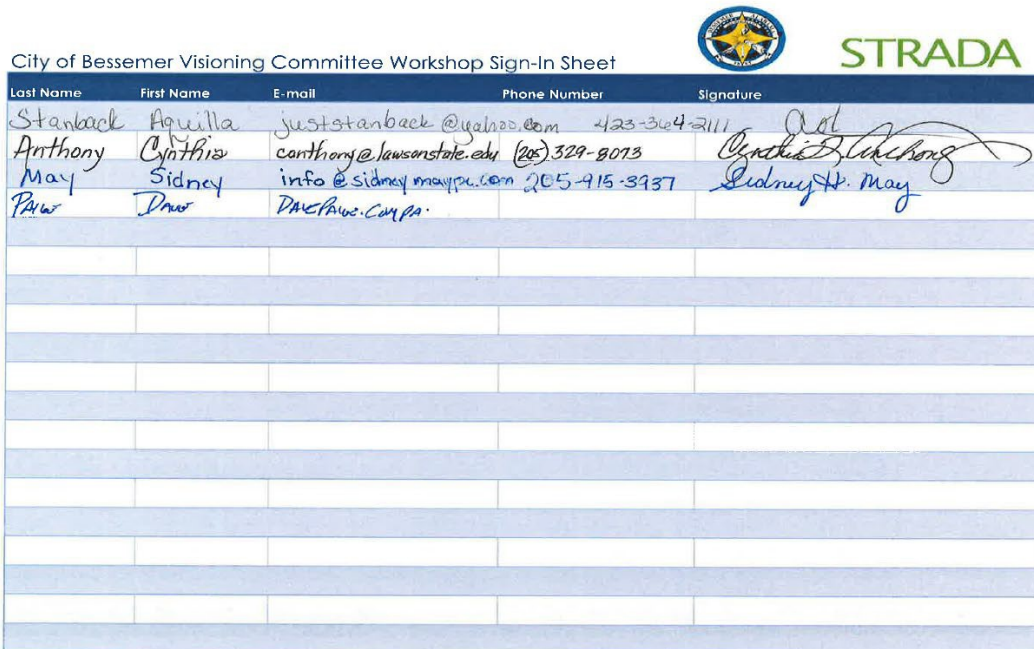 STRADA
City of Bessemer Visioning Committee Workshop Sign-In Sheet
Last Name First Name E-mail Phone Number Signature
Stanback Aquilla juststanback@yahoo.com 423-364-2111
Anthony Cynthia canthony@lawsonstate.edu (205) 329-8073
May Sidney info@sidneymaypc.com 205-915-3937 Sidney H. May